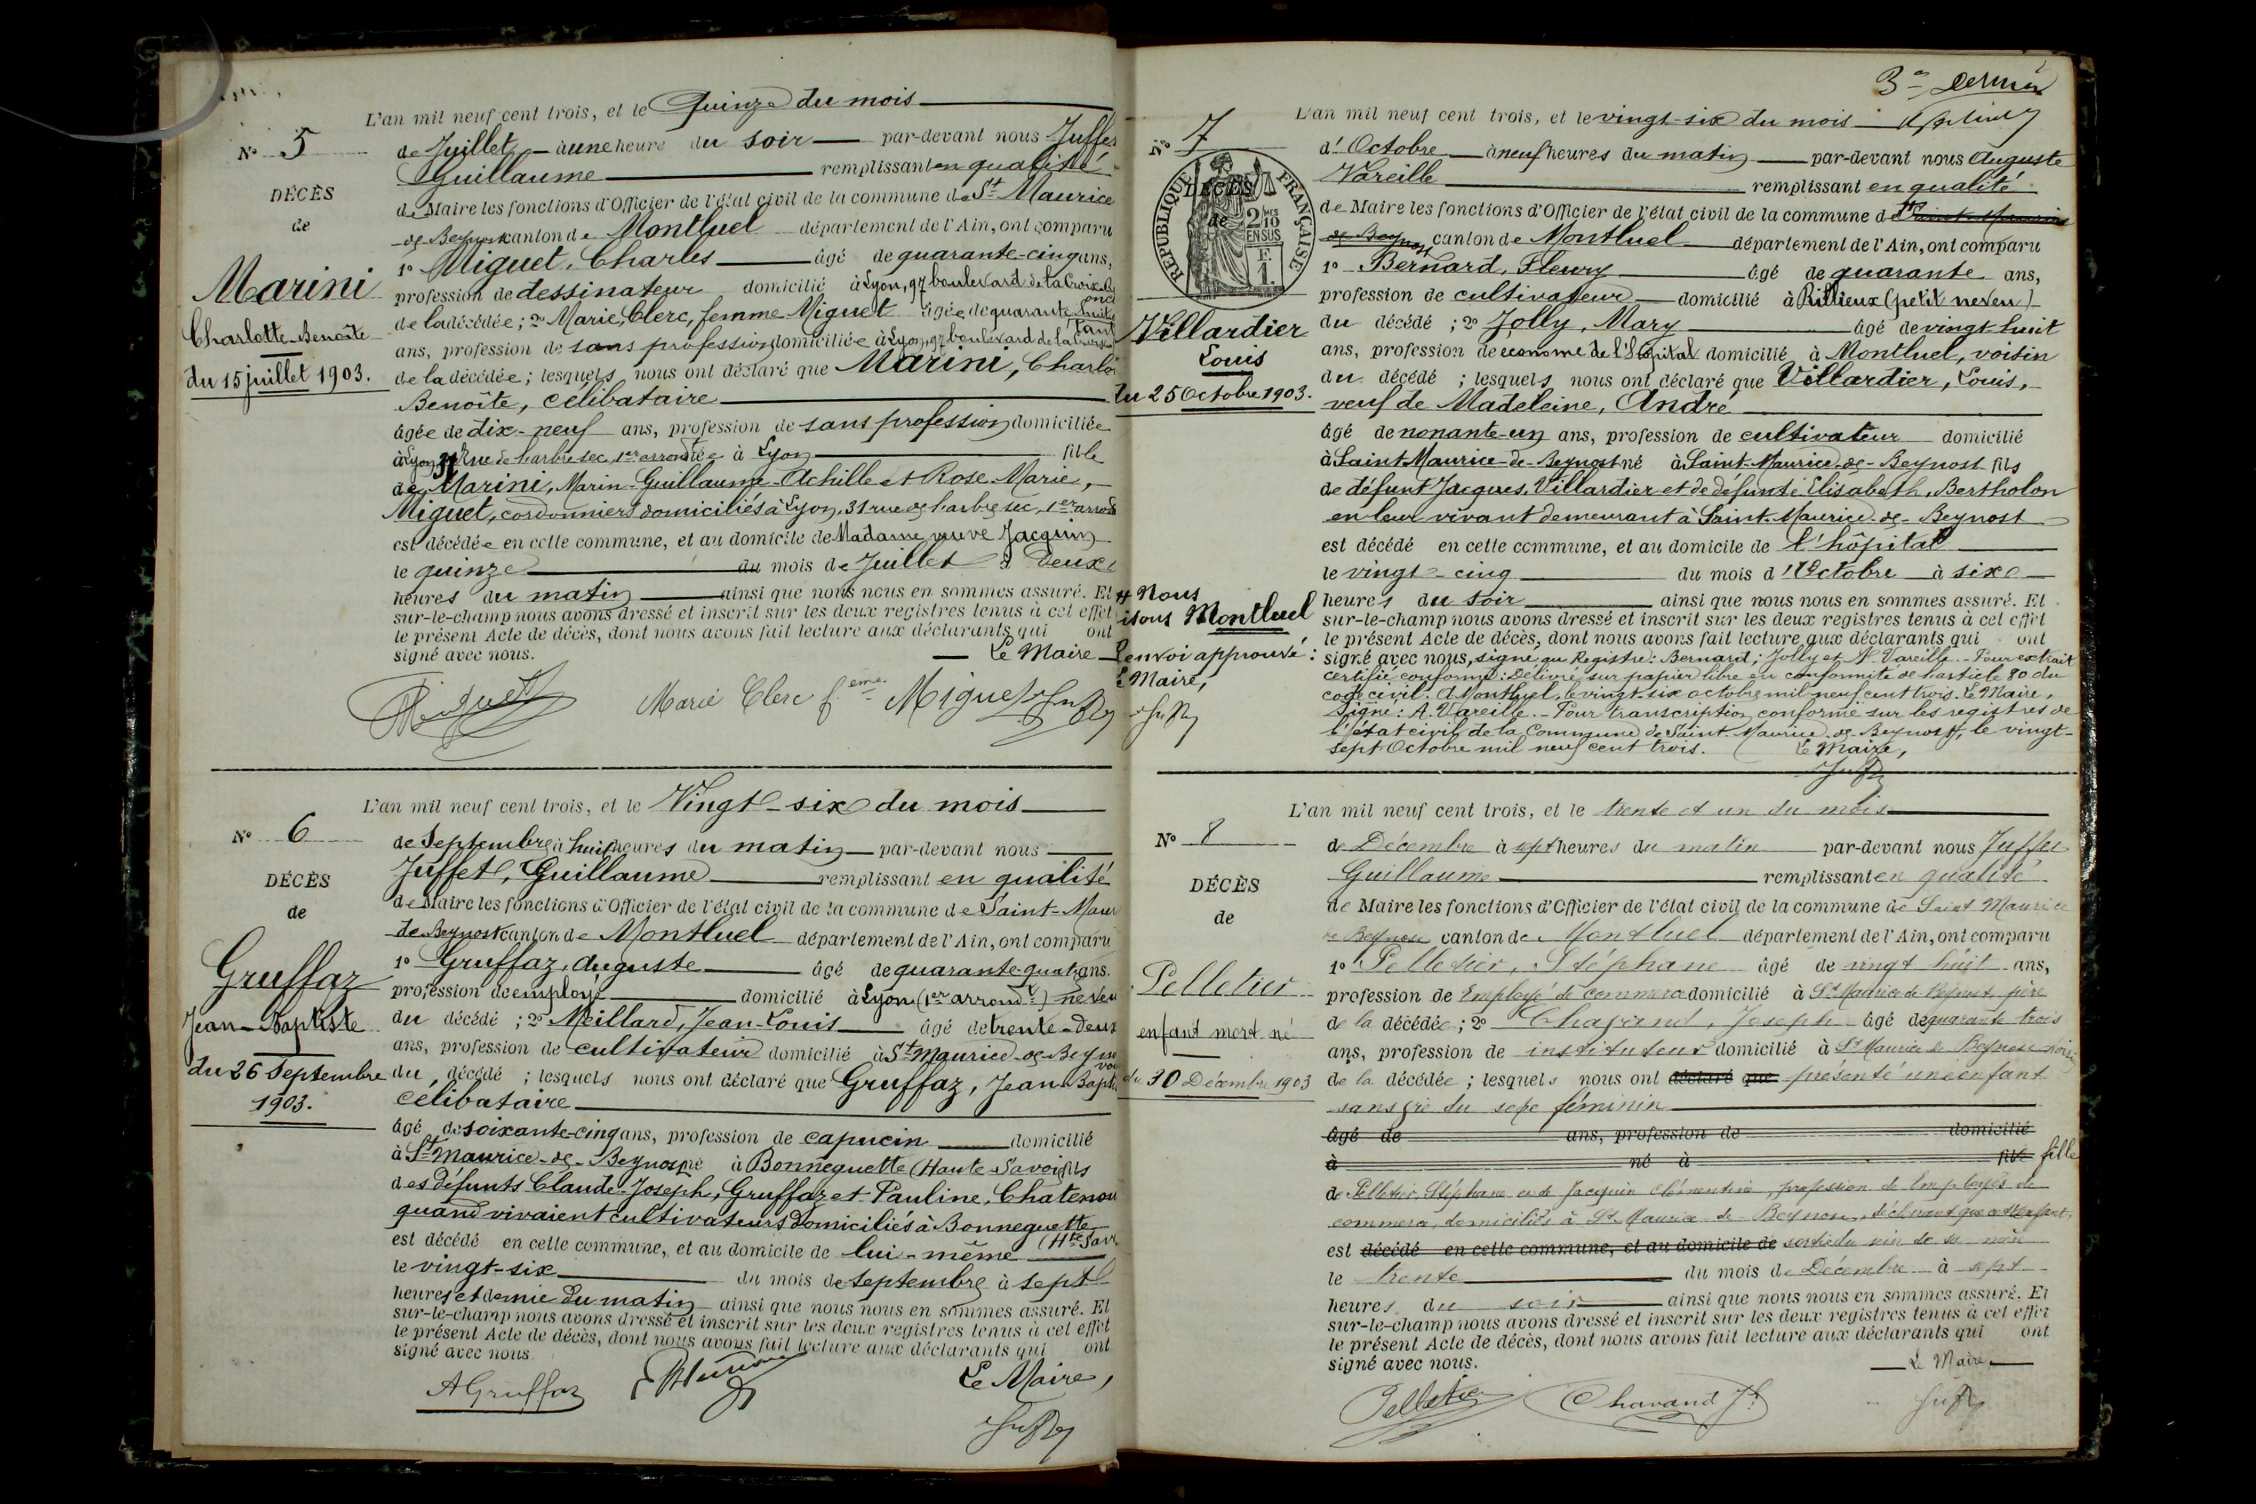 L'an mil neuf cent trois, et le Quinze du mois
N° 5
de Juillet à une heure du soir par-devant nous Juffet
Guillaume remplissant en qualité
DÉCÈS
de Maire les fonctions d'Officier de l'état civil de la commune de St Maurice
de
de Beynost canton de Montluel département de l'Ain, ont comparu
1° Miguet, Charles âgé de quarante-cinq ans,
Marini
profession de dessinateur domicilié à Lyon, 97 boulevard de la Croix
oncle
de la décédée; 2° Marie, Clerc, femme Miguet âgée de quarante
Charlotte-Benoîte
ans, profession de sans profession domiciliée à Lyon, 97 boulevard de la
du 15 juillet 1903.
de la décédée; lesquels nous ont déclaré que Marini, Charlo
Benoîte, célibataire
âgée de dix-neuf ans, profession de sans profession domiciliée
à Lyon, 31 Rue de l'arbre sec, 1er née à Lyon fille
de Marini, Marin-Guillaume-Achille et Rose-Marie,
Miguet, cordonniers domiciliés à Lyon, 31 rue de l'arbre sec, 1er arrond
est décédée en cette commune, et au domicile de Madame veuve Jacquin
le quinze du mois de Juillet à Deux
heures du matin ainsi que nous nous en sommes assuré. Et
sur-le-champ nous avons dressé et inscrit sur les deux registres tenus à cet effet
le présent Acte de décès, dont nous avons fait lecture aux déclarants qui ont
signé avec nous. Le Maire
Miguet Marie Clerc f. eme Miguet Juffet
L'an mil neuf cent trois, et le Vingt-six du mois
N° 6
de Septembre à huit heures du matin par-devant nous
Juffet, Guillaume remplissant en qualité
DÉCÈS
de Maire les fonctions d'Officier de l'état civil de la commune de Saint-Maur
de
de Beynost canton de Montluel département de l'Ain, ont comparu
1° Gruffaz, Auguste âgé de quarante-quatre ans.
Gruffaz
profession de employé domicilié à Lyon (1er arrondt) neveu
Jean-Baptiste
du décédé; 2° Meillard, Jean-Louis âgé de trente-deux
ans, profession de cultivateur domicilié à St Maurice-de-Beyno
du 26 Septembre
du décédé; lesquels nous ont déclaré que Gruffaz, Jean-Bapti
1903.
célibataire
âgé de soixante-cinq ans, profession de capucin domicilié
à St Maurice-de-Beynost né à Bonneguette (Haute-Savoie) fils
des défunts Claude-Joseph, Gruffaz et Pauline, Chatenou
quand vivaient cultivateurs domiciliés à Bonneguette
(Hte Sav
est décédé en cette commune, et au domicile de lui-même
le vingt-six du mois de septembre à sept
heures et demie du matin ainsi que nous nous en sommes assuré. Et
sur-le-champ nous avons dressé et inscrit sur les deux registres tenus à cet effet
le présent Acte de décès, dont nous avons fait lecture aux déclarants qui ont
signé avec nous
Le Maire,
AGruffaz
Juffet
3e dernier
L'an mil neuf cent trois, et le vingt-six du mois
N° 7
d'Octobre à neuf heures du matin par-devant nous Auguste
Vareille remplissant en qualité
DÉCÈS
de
RÉPUBLIQUE FRANÇAISE
2/10
EN SUS
de Maire les fonctions d'Officier de l'état civil de la commune de Saint-Maurice
de Beynost canton de Montluel département de l'Ain, ont comparu
1° Bernard, Fleury âgé de quarante ans,
profession de cultivateur domicilié à Rillieux (petit neveu)
Villardier
du décédé; 2° Jolly, Mary âgé de vingt-huit
Louis
ans, profession de économe de l'Hôpital domicilié à Montluel, voisin
du décédé; lesquels nous ont déclaré que Villardier, Louis,
du 25 Octobre 1903.
veuf de Madeleine, André
âgé de nonante-un ans, profession de cultivateur domicilié
à Saint-Maurice-de-Beynost né à Saint-Maurice-de-Beynost fils
de défunt Jacques, Villardier et de défunte Elisabeth, Bertholon
en leur vivant demeurant à Saint-Maurice-de-Beynost
est décédé en cette commune, et au domicile de l'hôpital
le vingt-cinq du mois d'Octobre à six
# Nous
heures du soir ainsi que nous nous en sommes assuré. Et
isons Montluel
sur-le-champ nous avons dressé et inscrit sur les deux registres tenus à cet effet
le présent Acte de décès, dont nous avons fait lecture aux déclarants qui ont
Renvoi approuvé:
signé avec nous, signé au Registre: Bernard; Jolly et A. Vareille. Pour extrait
Le Maire,
certifié conforme: Délivré sur papier libre en conformité de l'article 80 du
code civil. A Montluel, le vingt-six octobre mil neuf cent trois. Le Maire,
Juffet
Signé: A. Vareille. - Pour transcription conforme sur les registres de
l'état civil de la Commune de Saint-Maurice-de-Beynost, le vingt-
sept Octobre mil neuf cent trois. Le Maire,
Juffet
L'an mil neuf cent trois, et le trente et un du mois
N° 8
de Décembre à sept heures du matin par-devant nous Juffet
Guillaume remplissant en qualité
DÉCÈS
de Maire les fonctions d'Officier de l'état civil de la commune de Saint Maurice
de
de Beynost canton de Montluel département de l'Ain, ont comparu
1° Pelletier, Stéphane âgé de vingt huit ans,
Pelletier
profession de Employé de commerce domicilié à St Maurice de Beynost père
de la décédée; 2° Chavand, Joseph âgé de quarante trois
enfant mort né
ans, profession de instituteur domicilié à St Maurice de Beynost voisin
du 30 Décembre 1903
de la décédée; lesquels nous ont déclaré que présenté un enfant
sans vie du sexe féminin
âgé de ans, profession de domicilié
à né à fils fille
de Pelletier, Stéphane et de Jacquin Clémentine, profession de Employés de
commerce, domiciliés à St Maurice de Beynost, déclarant que cet enfant
est décédé en cette commune, et au domicile de sortie du sein de sa mère
le trente du mois de Décembre à sept
heures du soir ainsi que nous nous en sommes assuré. Et
sur-le-champ nous avons dressé et inscrit sur les deux registres tenus à cet effet
le présent Acte de décès, dont nous avons fait lecture aux déclarants qui ont
signé avec nous. Le Maire
Pelletier Chavand Jh Juffet